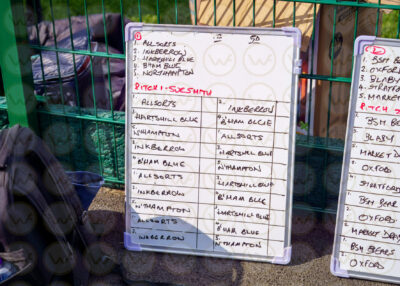 1. ALLSORTS
2. INKBERROW
3. HARTSHILL BLUE
4. B'HAM BLUE
5. N'HAMPTON
PITCH 1 -
ALLSORTS INKBERROW
HARTSHILL BLUE B'HAM BLUE
N'HAMPTON ALLSORTS
INKBERROW HARTSHILL BLUE
B'HAM BLUE N'HAMPTON
ALLSORTS HARTSHILL BLUE
INKBERROW B'HAM BLUE
N'HAMPTON HARTSHILL BLUE
ALLSORTS B'HAM BLUE
INKBERROW N'HAMPTON
2
1. BSM
2. OXFORD
3. BLABY
4. STRATF
5. MARKET
PITCH
BSM
BLABY
MARKET
OXFORD
STRATFORD
BSM
OXFORD
MARKET
BSM BEARS
OXFORD